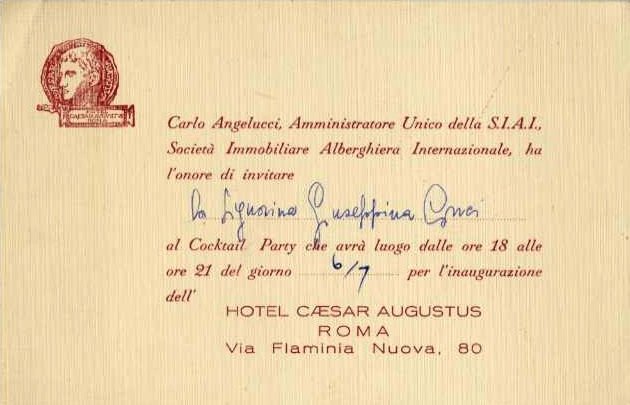 HOTEL
CAESAR AUGUSTUS
ROMA
Carlo Angelucci, Amministratore Unico della S.I.A.I.,
Società Immobiliare Alberghiera Internazionale, ha
l'onore di invitare
la Signorina Giuseppina
al Cocktail Party che avrà luogo dalle ore 18 alle
ore 21 del giorno 6/7 per l'inaugurazione
dell'
HOTEL CÆSAR AUGUSTUS
ROMA
Via Flaminia Nuova, 80